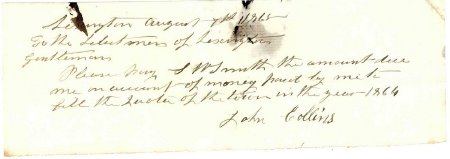 Lexington August 7th 1865
To the Selectmen of Lexington
Gentlemen
Please pay S W Smith the amount due
me on account of money paid by me to
fill the Quota of the town in the year 1864
John Collins